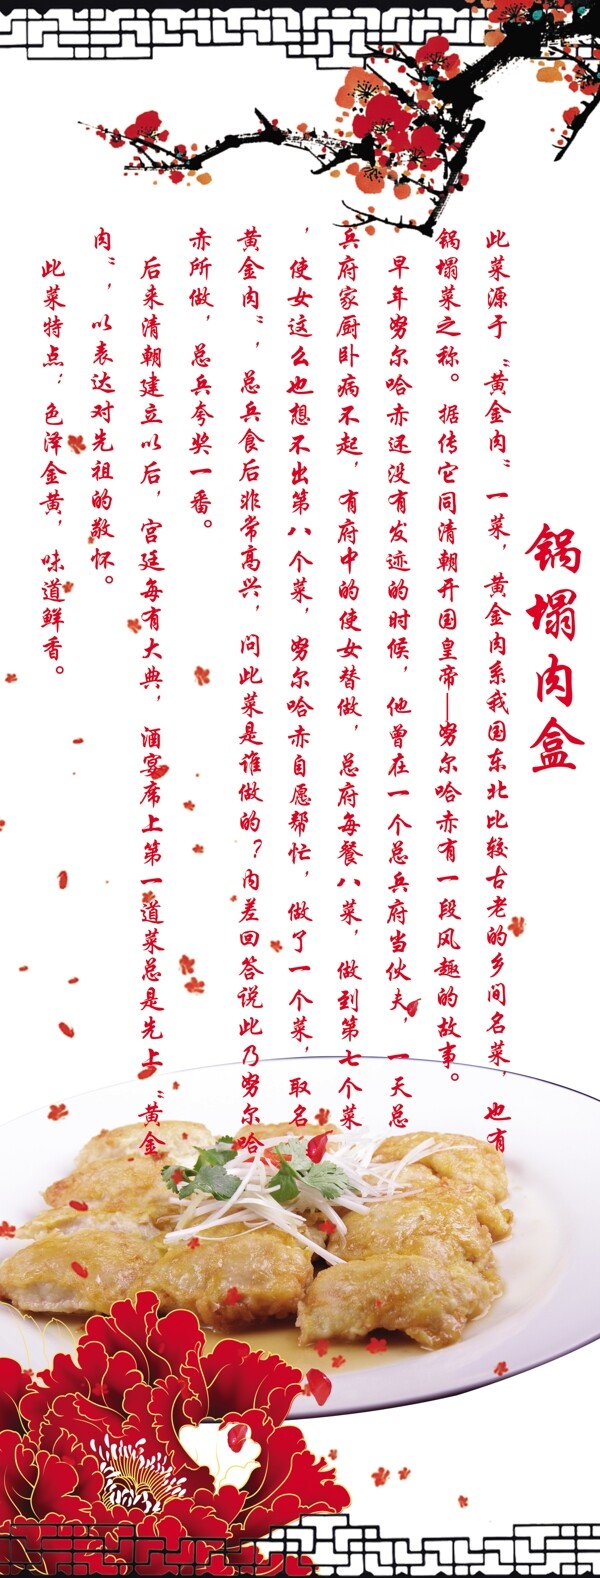 锅塌肉盒
此菜源于〝黄金肉〞一菜，黄金肉系我国东北比较古老的乡间名菜，也有
锅塌菜之称。据传它同清朝开国皇帝—努尔哈赤有一段风趣的故事。
早年努尔哈赤还没有发迹的时候，他曾在一个总兵府当伙夫，一天总
兵府家厨卧病不起，有府中的使女替做，总府每餐八菜，做到第七个菜
，使女这么也想不出第八个菜，努尔哈赤自愿帮忙，做了一个菜，取名〝
黄金肉〞，总兵食后非常高兴，问此菜是谁做的？内差回答说此乃努尔哈
赤所做，总兵夸奖一番。
后来清朝建立以后，宫廷每有大典，酒宴席上第一道菜总是先上〝黄金
肉〞，以表达对先祖的敬怀。
此菜特点：色泽金黄，味道鲜香。